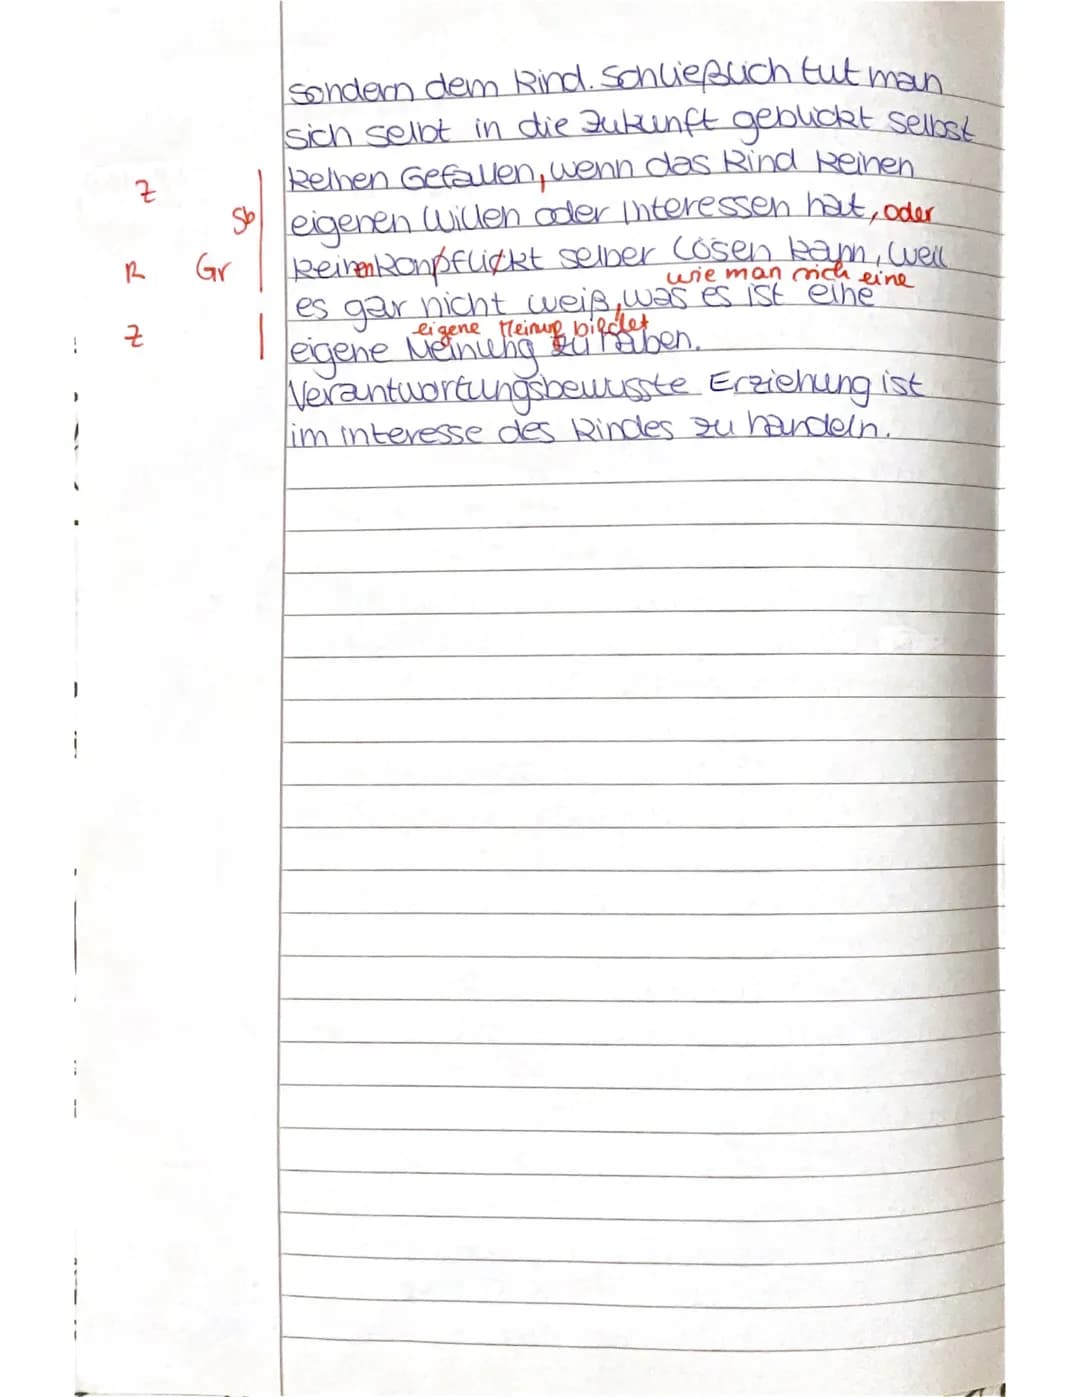 sondern dem Kind. Schließlich tut man
sich selbt in die Zukunft geblickt selbst
Z keinen Gefallen, wenn das Kind keinen
Sb eigenen Willen oder Interessen hat, oder
R Gr keinen Konpflickt selber lösen kann, weil
wie man sich eine
es gar nicht weiß, was es ist eine
eigene Meinung bildet
Z eigene Meinung zu haben.
Verantwortungsbewusste Erziehung ist
im interesse des Kindes zu handeln.